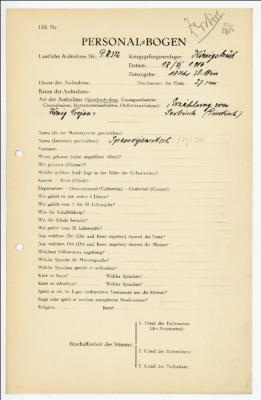 Lfd. Nr.
PERSONAL-BOGEN
Lautliche Aufnahme Nr.: Kriegsgefangenenlager: Königsbrück
Datum:
Zeitangabe:
Dauer der Aufnahme: Durchmesser der Platte: 27 cm
Raum der Aufnahme:
Art der Aufnahme (Sprechaufnahme, Gesangsaufnahme, Erzählung vom
König Trojan.
Name (in der Muttersprache geschrieben):
Name (lateinisch geschrieben):
Vorname:
Wann geboren (oder ungefähres Alter)?
Wo geboren (Heimat)?
Welche größere Stadt liegt in der Nähe des Geburtsortes?
Kanton — Kreis (Ujezd):
Departement — Gouvernement (Gubernija) — Grafschaft (County):
Wo gelebt in den ersten 6 Jahren?
Wo gelebt vom 7. bis 20. Lebensjahr?
Was für Schulbildung?
Wo die Schule besucht?
Wo gelebt vom 20. Lebensjahr?
Aus welchem Ort (Ort und Kreis angeben) stammt der Vater?
Aus welchem Ort (Ort und Kreis angeben) stammt die Mutter?
Welchem Volksstamm angehörig?
Welche Sprache als Muttersprache?
Welche Sprachen spricht er außerdem?
Kann er lesen? Welche Sprachen?
Kann er schreiben? Welche Sprachen?
Spielt er ein im Lager vorhandenes Instrument aus der Heimat?
Singt oder spielt er modern europäische Musikweisen?
Religion: Beruf:
Beschaffenheit der Stimme:
1. Urteil des Fachmannes
(des Assistenten):
2. Urteil des Kommissars:
3. Urteil des Technikers: